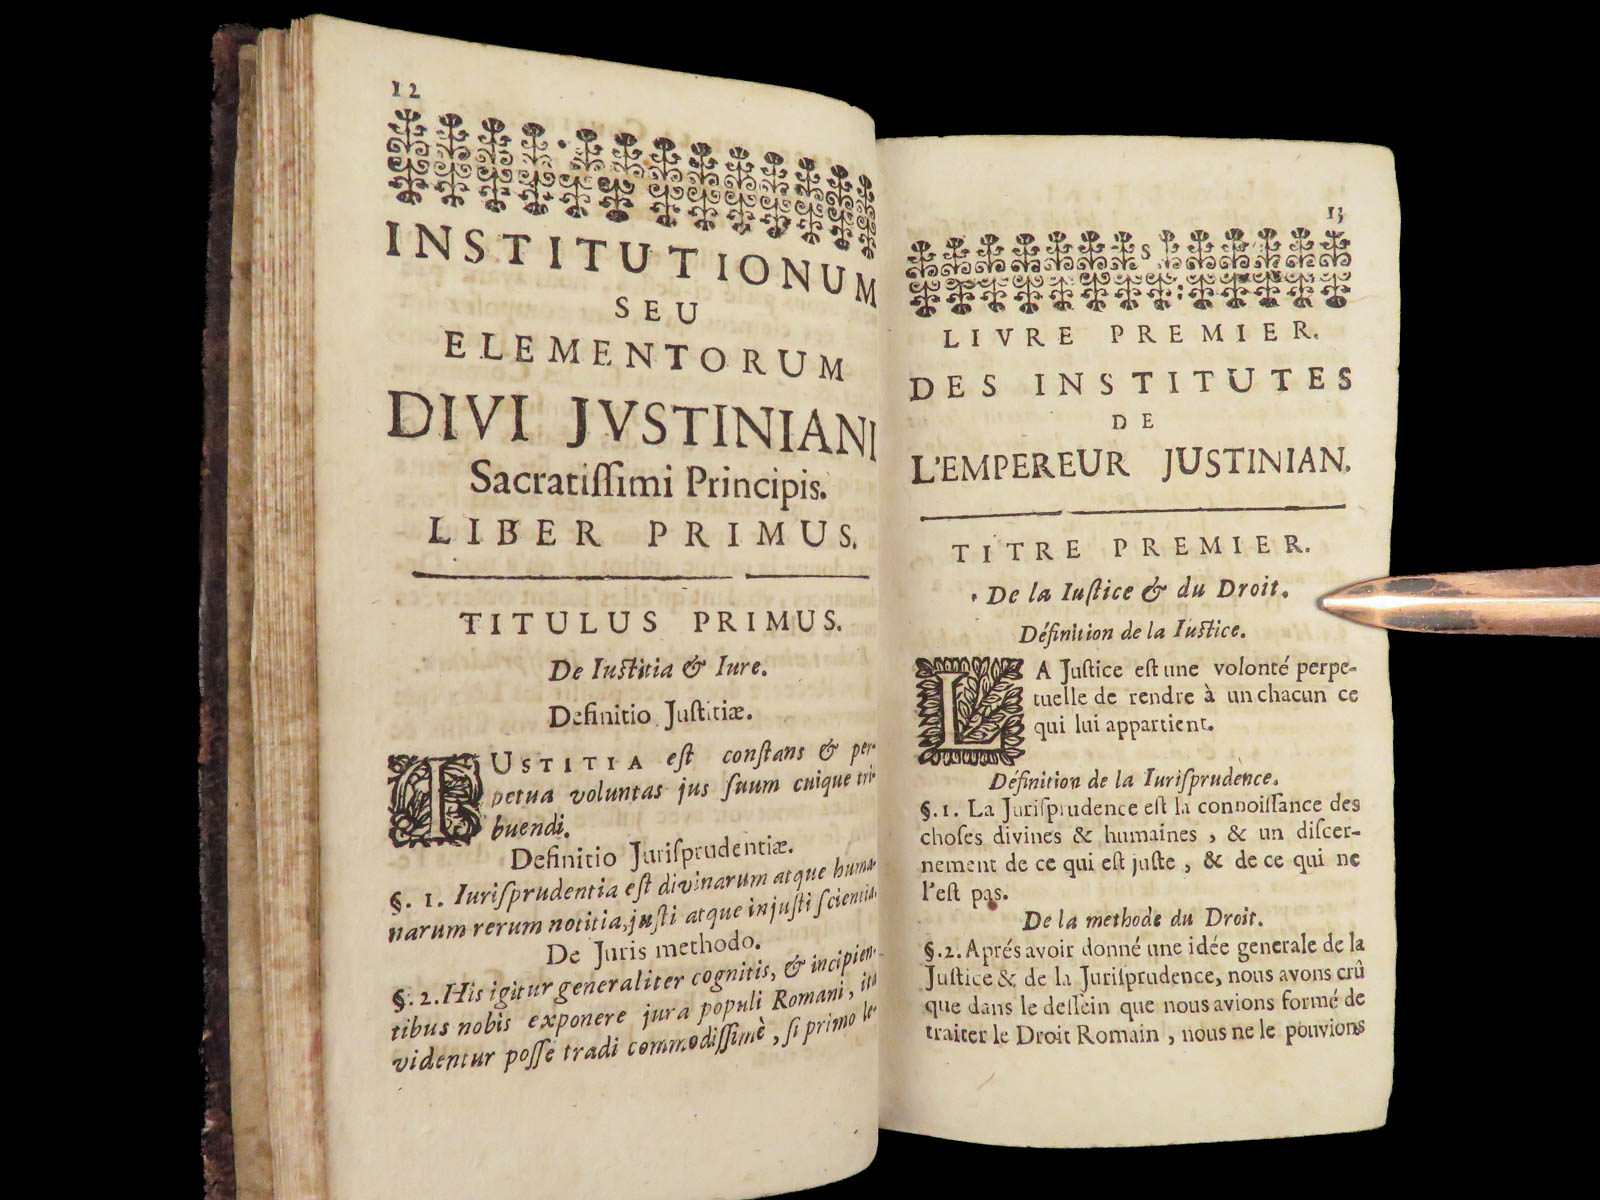 12
INSTITUTIONUM
SEU
ELEMENTORUM
DIVI JVSTINIANI
Sacratiſſimi Principis.
LIBER PRIMUS.
TITULUS PRIMUS.
De Iuſtitia & Iure.
Definitio Juſtitiæ.
IUSTITIA eſt conſtans & per-
petua voluntas jus ſuum cuique tri-
buendi.
Definitio Juriſprudentiæ.
§. 1. Iuriſprudentia eſt divinarum atque huma-
narum rerum notitia, juſti atque injuſti ſcientia.
De Juris methodo.
§. 2. His igitur generaliter cognitis, & incipien-
tibus nobis exponere jura populi Romani, ita
videntur poſſe tradi commodiſſimè, ſi primo le-
13
LIVRE PREMIER.
DES INSTITUTES
DE
L'EMPEREUR JUSTINIAN.
TITRE PREMIER.
De la Iuſtice & du Droit.
Définition de la Iuſtice.
LA Juſtice eſt une volonté perpe-
tuelle de rendre à un chacun ce
qui lui appartient.
Définition de la Iuriſprudence.
§. 1. La Juriſprudence eſt la connoiſſance des
choſes divines & humaines, & un diſcer-
nement de ce qui eſt juſte, & de ce qui ne
l'eſt pas.
De la methode du Droit.
§. 2. Aprés avoir donné une idée generale de la
Juſtice & de la Juriſprudence, nous avons crû
que dans le deſſein que nous avions formé de
traiter le Droit Romain, nous ne le pouvions